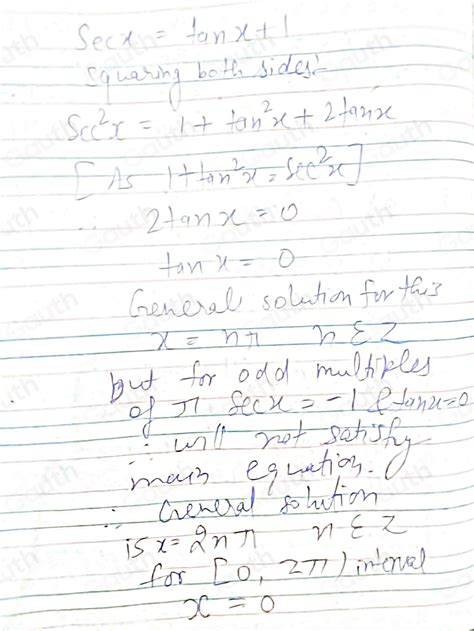 Secx = tanx+1
squaring both sides:-
Sec²x = 1 + tan²x + 2tanx
[As 1+tan²x = sec²x]
∴ 2tanx = 0
tanx = 0
General solution for this
x = nπ n ε Z
but for odd multiples
of π Secx = -1 & tanx=0
∴ will not satisfy
main equation.
∴ General solution
is x = 2nπ n ε Z
for [0, 2π) interval
x = 0